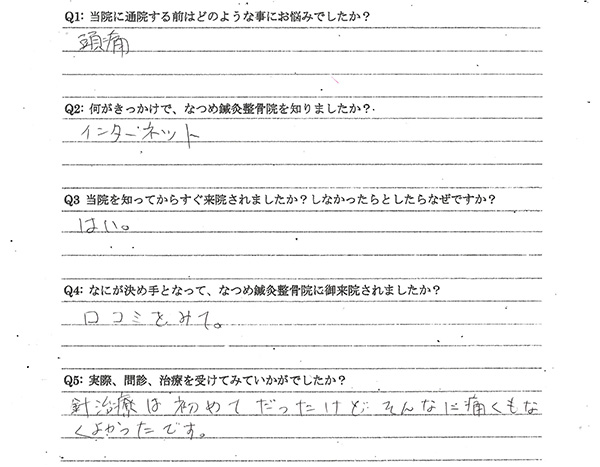 Q1: 当院に通院する前はどのような事にお悩みでしたか?
頭痛
Q2: 何がきっかけで、なつめ鍼灸整骨院を知りましたか?
インターネット
Q3 当院を知ってからすぐ来院されましたか?しなかったらとしたらなぜですか?
はい。
Q4: なにが決め手となって、なつめ鍼灸整骨院に御来院されましたか?
口コミをみて。
Q5: 実際、問診、治療を受けてみていかがでしたか?
針治療は初めてだったけど、そんなに痛くもな
くよかったです。